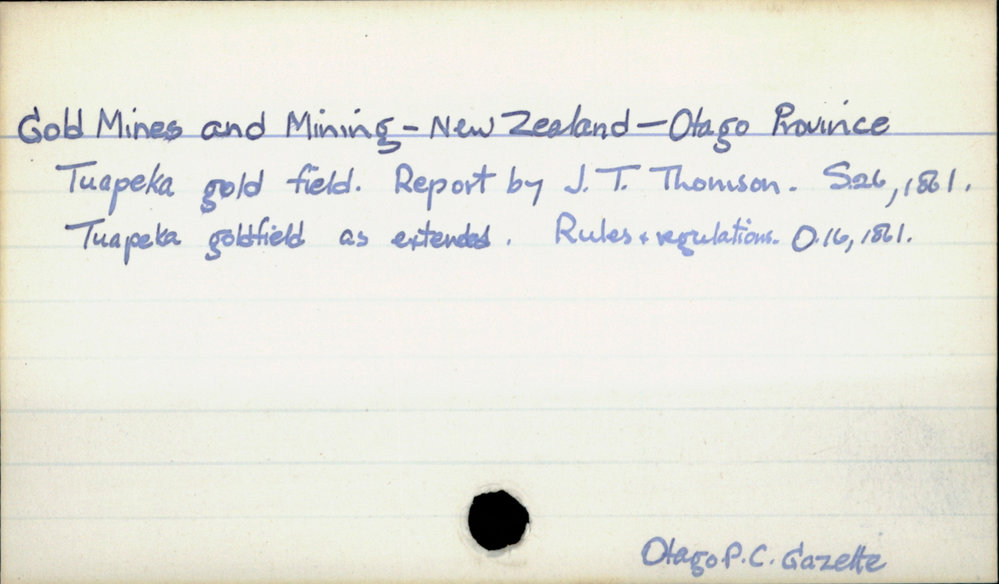 Gold Mines and Mining - New Zealand - Otago Province
Tuapeka gold field. Report by J. T. Thomson. S.26, 1861.
Tuapeka goldfield as extended. Rules & regulations. O.16, 1861.
Otago P.C. Gazette